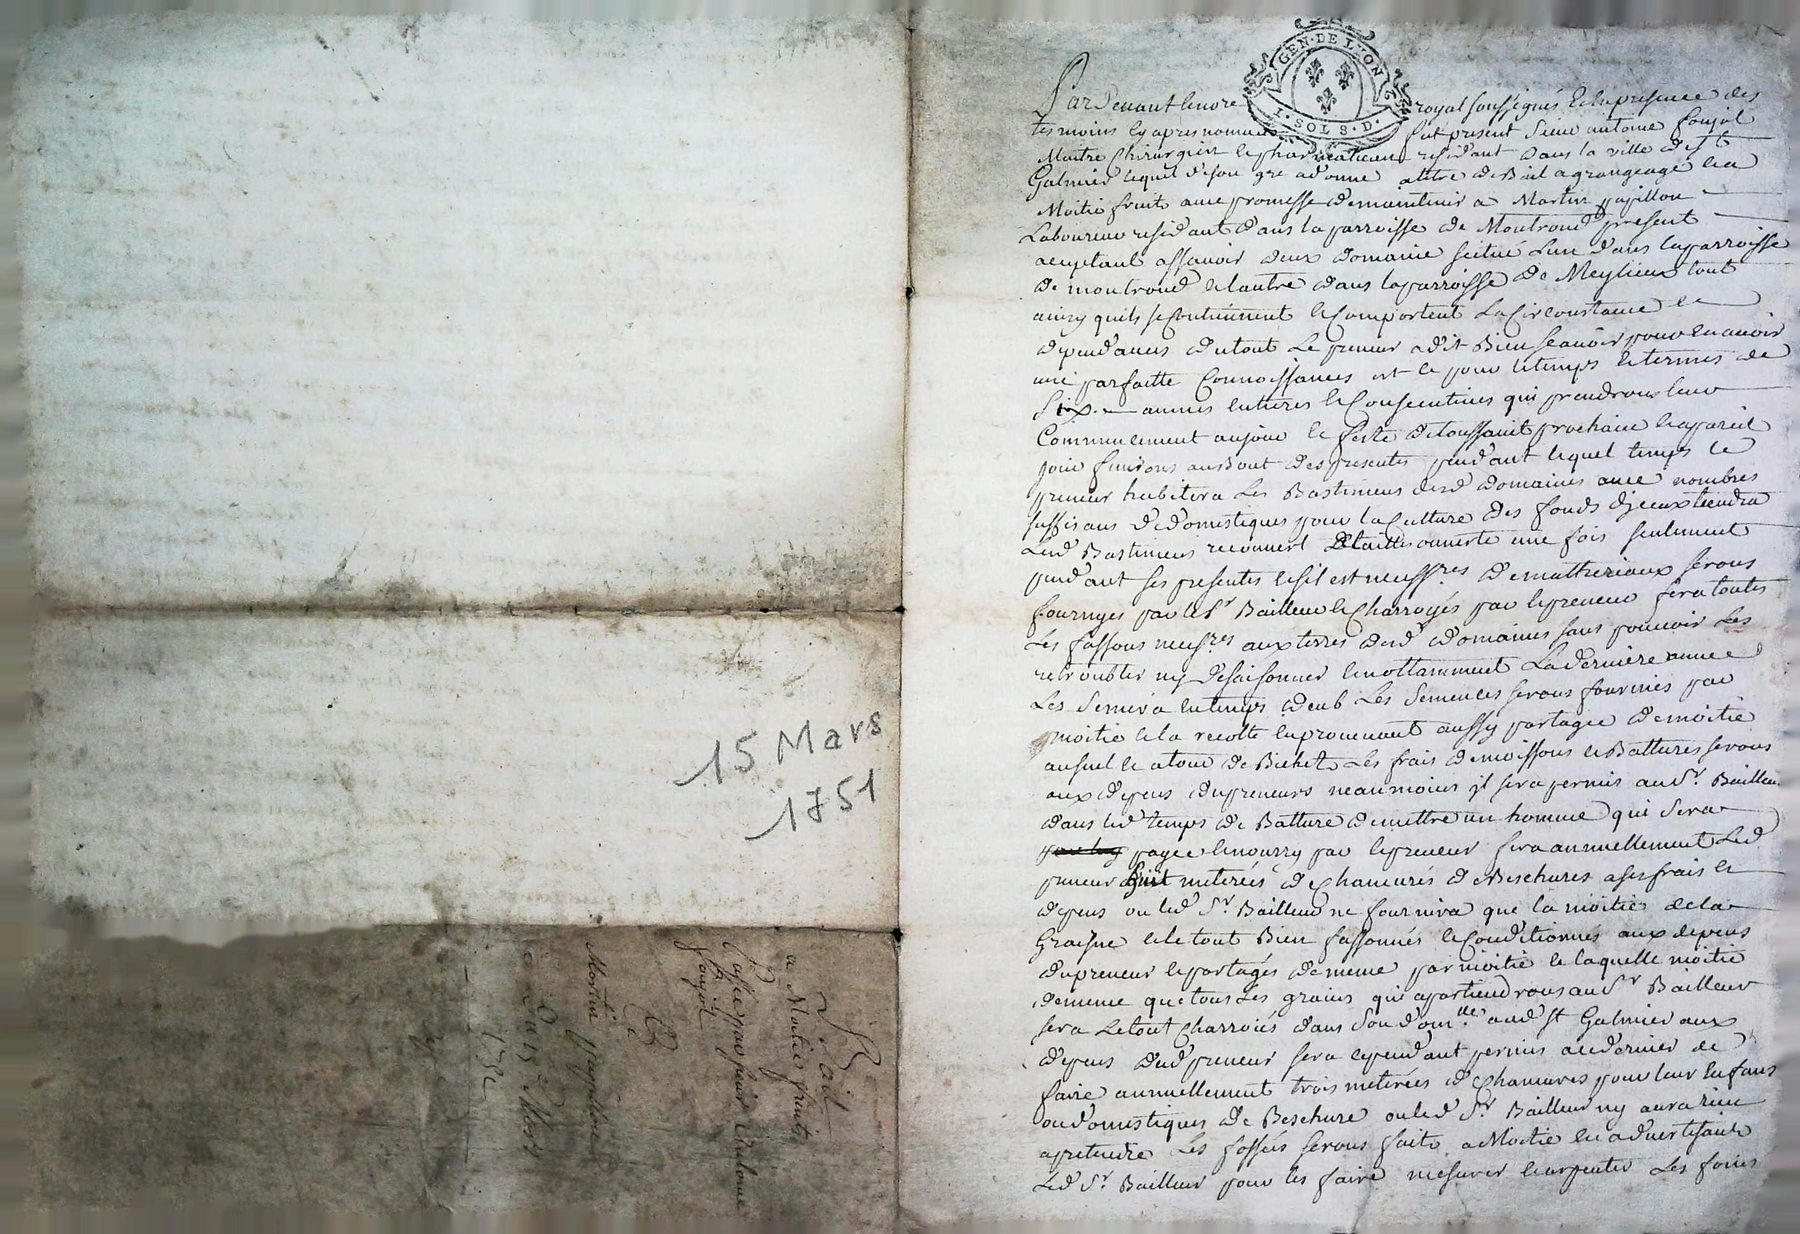 15 Mars
1751
Bail
a Moitié fruits
Passé par sieur Antoine
Foujol
à
Martin papillon
Du 15e Mars
1751
GEN · DE LYON
1 · SOLS · D ·
Par Devant le no.re royal soussignés & en presence des
tesmoins cy apres nommés fut present sieur antoine foujol
Maitre Chirurgien resid'ant Dans la ville de St
Galmier lequel de son gre a donné a titre de Bail a grangeage et a
Moitié fruit avec promesse de maintenir a Martin papillon
Laboureur resid'ant dans la parroisse de Montrond present
acceptant assavoir deux domaine scitué Lun dans la parroisse
de montrond et lautre dans la parroisse de Meylieux tout
ainsy quils se Contiennent et Comportent La Circonstance et
dependances du tout Le preneur a dit Bien scavoir pour en avoir
une parfaitte Connoissances et ce pour le temps et termes de
Six annees entieres et Consecutives qui prendrons leur
Commencement au jour et feste de toussaint prochaine et a pareil
jour finirons au Bout des presentes pend'ant lequel temps le
preneur habitera Les Bastiments desd domaines avec nombres
suffisans de domestiques pour la Culture des fonds d'jceux tiendra
Lesd Bastiments recouvert une fois seulement
pend'ant ses presentes et sil est necess.res de mattereriaux serons
fournyes par le Sr Bailleur et Charroyés par le preneur fera toutes
Les fassons necess.res aux terres desd domaines sans pouvoir Les
retroubler ny desaisonner et nottamment La derniere annee
Les Semera en temps deub Les Semences serons fournies par
moitié et la recolte en provenant aussy partagee de moitié
au suel et atour de Bichet Les frais de moissons et Battures serons
aux depens du preneurs neanmoins jl sera permis au Sr. Bailleur
dans led temps de Batture de mettre un homme qui Sera
payee et nourry par le preneur fera annuellement Led
preneur huit meterées de Chanvres de Beschures a ses frais et
depens ou led Sr Bailleur ne fournira que la moitié de la
Graisne et le tout Bien fassonnés et Conditionnés aux depens
du preneur et partagés de meme par moitié et laquelle moitié
de meme que tous Les grains qui apartiendrons au Sr Bailleur
sera Le tout Charroiés dans Son dom.lle aud St Galmier aux
depens dud preneur sera cepend'ant permis au dernier de
faire annuellement trois meterées de Chanvres pour leur Enfans
ou domestiques de Beschure ou led Sr Bailleur ny aura rien
a pretendre Les fossés serons faits a Moitié en advertisant
Led Sr Bailleur pour les faire mesurer et arpenter Les foins